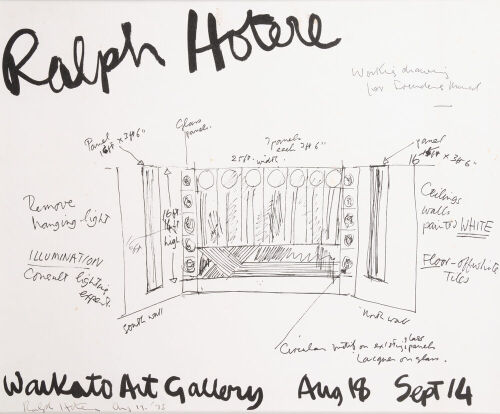 Ralph Hotere
Working drawing
for Founders Mural
Glass
panels.
Panel
16ft x 3ft 6"
7 panels
each 3ft 6"
25ft. width.
panel
16ft x 3ft 6"
16
Remove
hanging-light
ILLUMINATION
Consult lighting
expert.
high
Ceilings
walls
painted WHITE
Floor-offwhite
Tiles
South wall
North wall
Circular motifs on existing glass panels
Lacquer on glass.
Waikato Art Gallery Aug 18 Sept 14
Ralph Hotere Aug